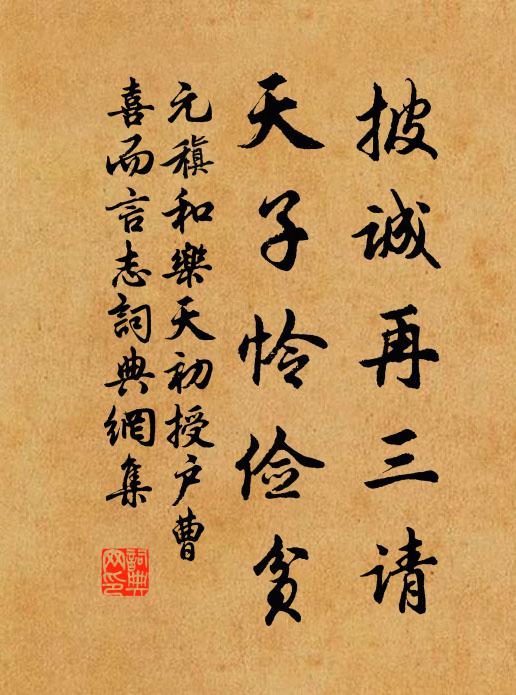 披诚再三请
天子怜俭贫
元稹和樂天初授户曹
喜而言志詞典網集
詞典网印